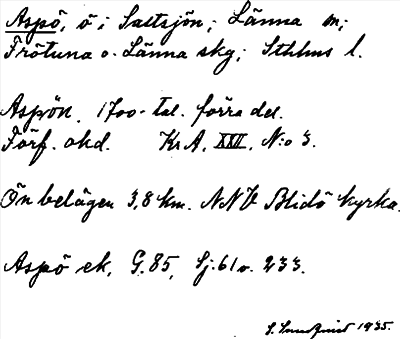 Aspö, ö i Saltsjön; Länna sn;
Frötuna o. Länna skg; Sthlms l.
Aspön. 1700-tal. förra del.
Förf. okd. Kr A, XXII, N:o 3.
Ön belägen 3,8 km. NNV Blidö kyrka.
Aspö ek, G. 85, Sj. 61 v. 233.
S. Sundqvist 1935.